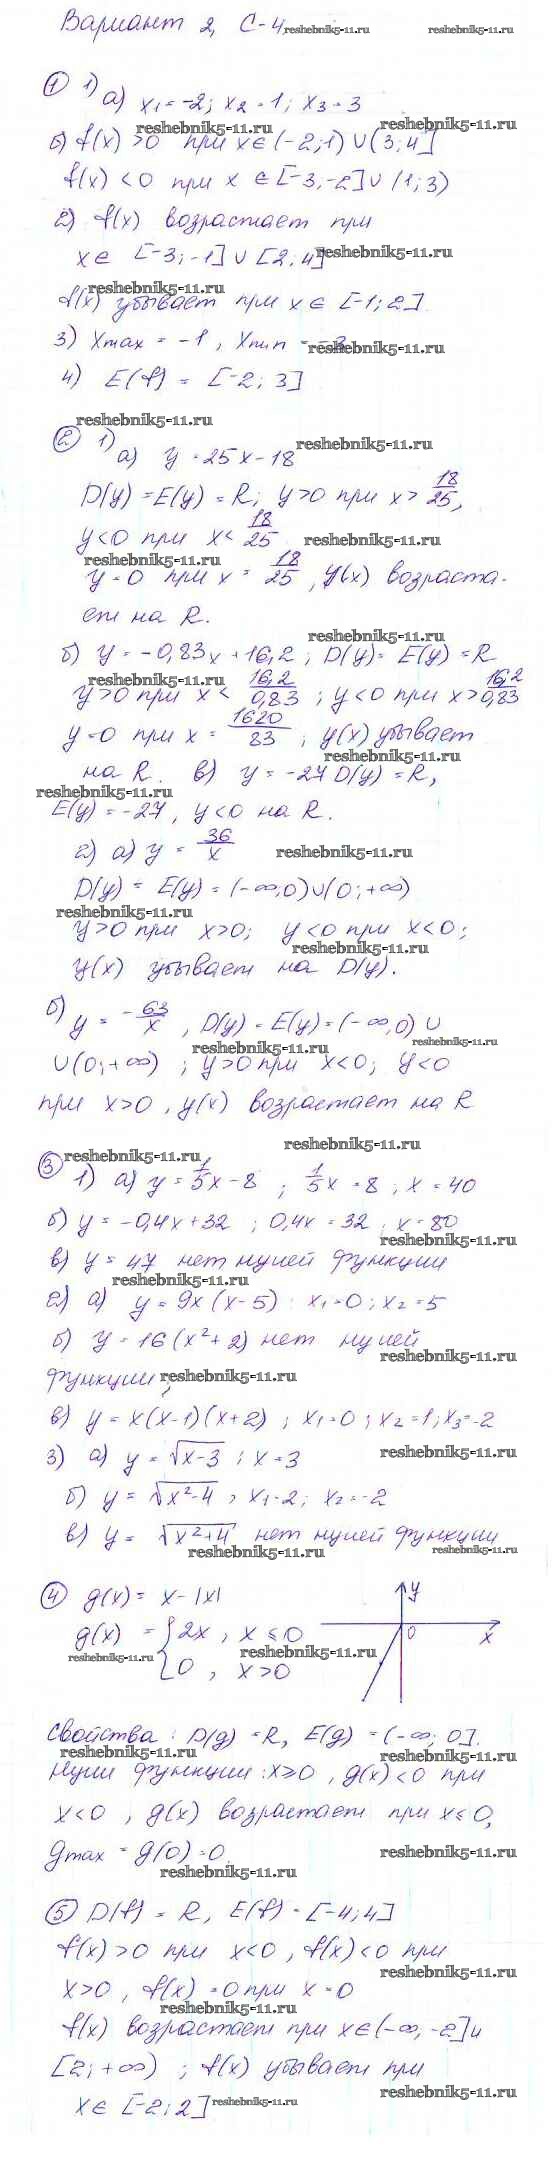 Вариант 2, С-4 reshebnik5-11.ru reshebnik5-11.ru
① 1) а) x₁ = -2; x₂ = 1; x₃ = 3
reshebnik5-11.ru
б) f(x) > 0 при x ∈ (-2; 1) ∪ (3; 4]
f(x) < 0 при x ∈ [-3; -2] ∪ (1; 3)
2) f(x) возрастает при
x ∈ [-3; -1] ∪ [2; 4] reshebnik5-11.ru
reshebnik5-11.ru
f(x) убывает при x ∈ [-1; 2].
3) xmax = -1, xmin = reshebnik5-11.ru
4) E(f) = [-2; 3]
reshebnik5-11.ru
② 1) а) y = 25x - 18
D(y) = E(y) = R; y > 0 при x > 18/25,
y < 0 при x < 18/25 reshebnik5-11.ru
reshebnik5-11.ru
y = 0 при x = 18/25, y(x) возраста-
ет на R.
reshebnik5-11.ru
б) y = -0,83x + 16,2; D(y) = E(y) = R
reshebnik5-11.ru
y > 0 при x < 16,2/0,83; y < 0 при x > 16,2/0,83
y = 0 при x = 1620/83; y(x) убывает
reshebnik5-11.ru
на R. в) y = -27 D(y) = R,
reshebnik5-11.ru
E(y) = -27, y < 0 на R.
2) а) y = 36/x reshebnik5-11.ru
D(y) = E(y) = (-∞; 0) ∪ (0; +∞)
reshebnik5-11.ru
y > 0 при x > 0; y < 0 при x < 0;
reshebnik5-11.ru
y(x) убывает на D(y).
б) y = -63/x, D(y) = E(y) = (-∞; 0) ∪
reshebnik5-11.ru reshebnik5-11.ru
∪ (0; +∞); y > 0 при x < 0; y < 0
при x > 0, y(x) возрастает на R
reshebnik5-11.ru reshebnik5-11.ru
③ 1) а) y = 1/5x - 8; 1/5x = 8; x = 40
б) y = -0,4x + 32; 0,4x = 32; x = 80
в) y = 47 нет нулей функции
reshebnik5-11.ru
2) а) y = 9x(x - 5); x₁ = 0; x₂ = 5
б) y = 16(x² + 2) нет нулей
reshebnik5-11.ru
функции, reshebnik5-11.ru
в) y = x(x-1)(x+2); x₁ = 0; x₂ = 1; x₃ = -2
3) а) y = √(x-3); x = 3 reshebnik5-11.ru
б) y = √(x²-4), x₁ = 2; x₂ = -2
в) y = √(x²+4) нет нулей функции
reshebnik5-11.ru reshebnik5-11.ru
④ g(x) = x - |x|
g(x) = {2x, x ≤ 0
0, x > 0
reshebnik5-11.ru reshebnik5-11.ru
y
0
x
Свойства: D(g) = R, E(g) = (-∞; 0].
reshebnik5-11.ru reshebnik5-11.ru
Нули функции: x ≥ 0, g(x) < 0 при
x < 0, g(x) возрастает при x ≤ 0,
gmax = g(0) = 0 reshebnik5-11.ru
reshebnik5-11.ru
⑤ D(f) = R, E(f) = [-4; 4]
f(x) > 0 при x < 0, f(x) < 0 при
reshebnik5-11.ru
x > 0, f(x) = 0 при x = 0
reshebnik5-11.ru
f(x) возрастает при x ∈ (-∞; -2] и
[2; +∞); f(x) убывает при
x ∈ [-2; 2] reshebnik5-11.ru reshebnik5-11.ru